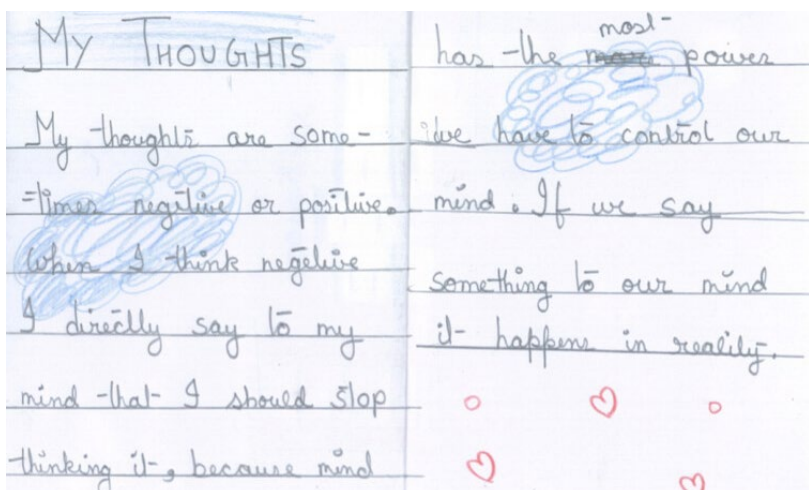 MY THOUGHTS
My thoughts are some-
-times negitive or positive.
When I think negetive
I directly say to my
mind that I should stop
thinking it, because mind
has the most power
we have to control our
mind. If we say
something to our mind
it happens in reality.